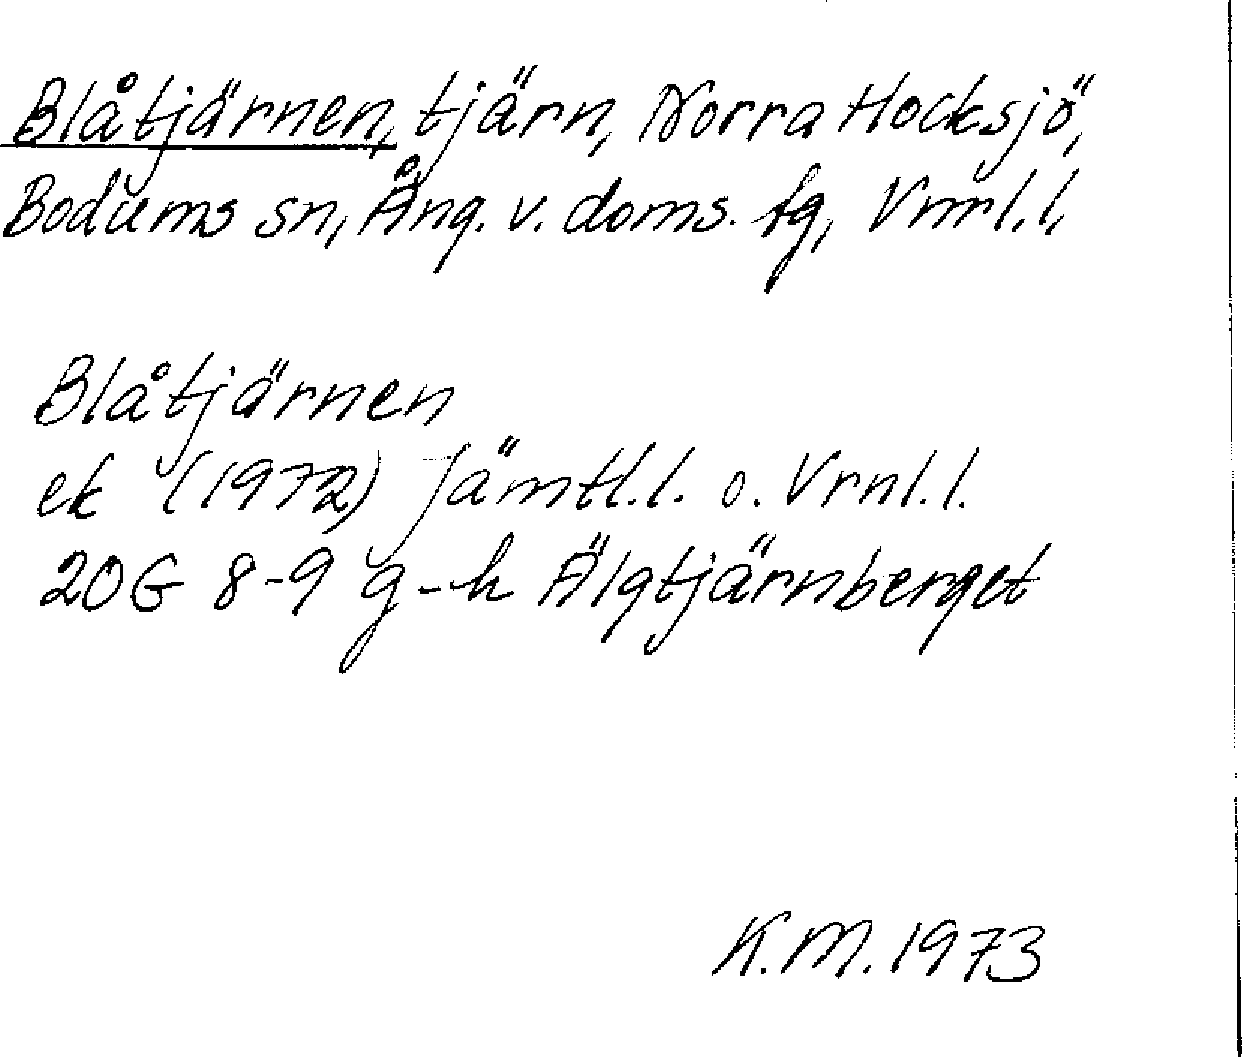 Blåtjärnen, tjärn, Norra Hocksjö,
Bodums sn, Ång. v. doms. fg, Vrnl.l.
Blåtjärnen
ek (1972) Jämtl.l. o. Vrnl.l.
20G 8-9 g-h Älgtjärnberget
K.M. 1973